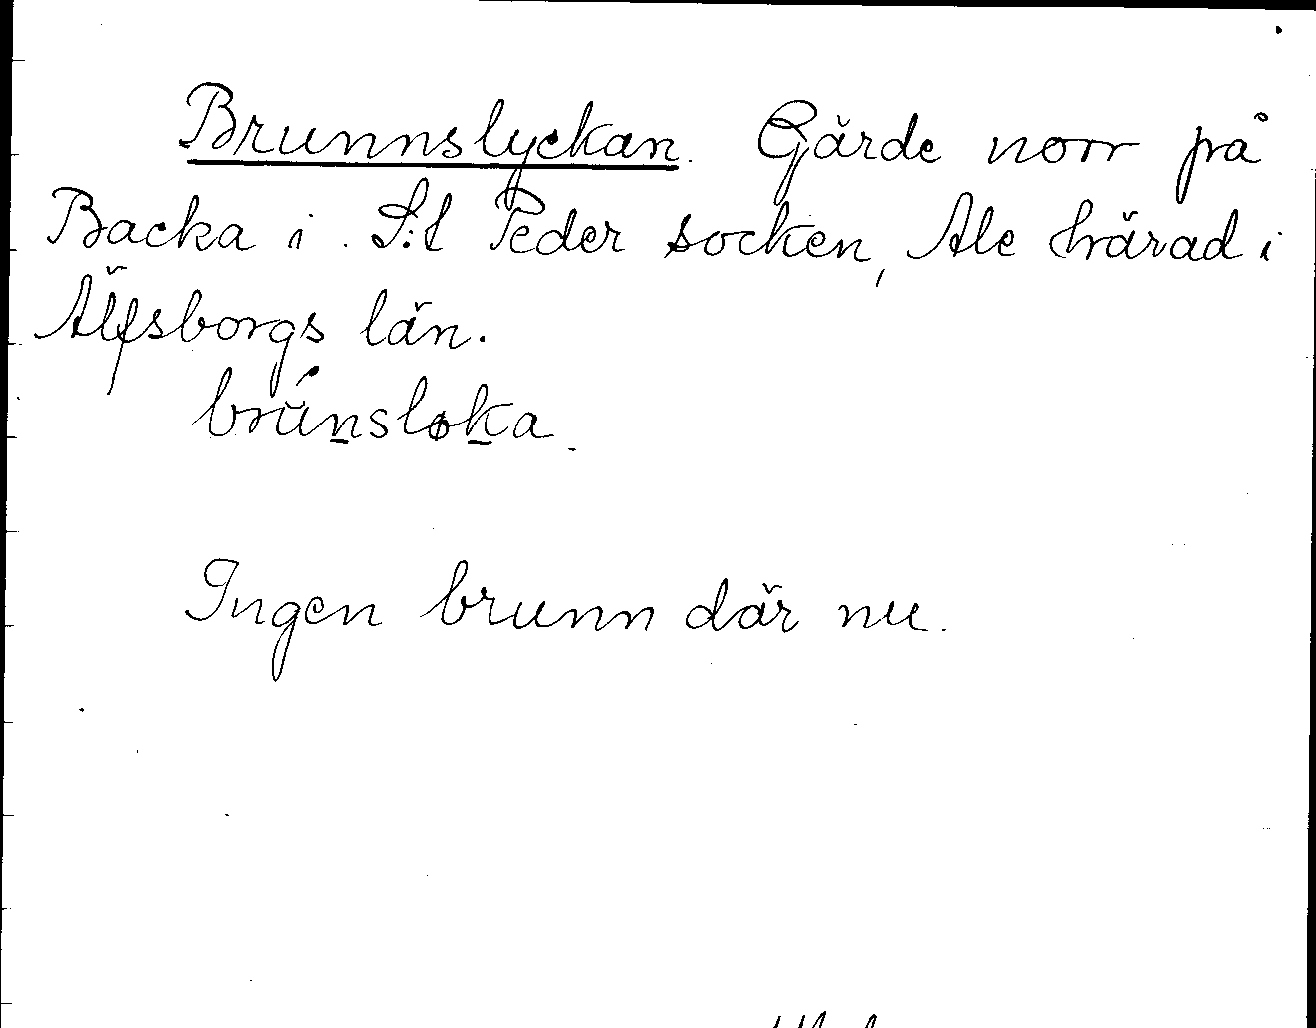 Brunnslyckan. Gärde norr på
Backa i S:t Peder socken, Ale härad i
Älfsborgs län.
brúnsløka.
Ingen brunn där nu.